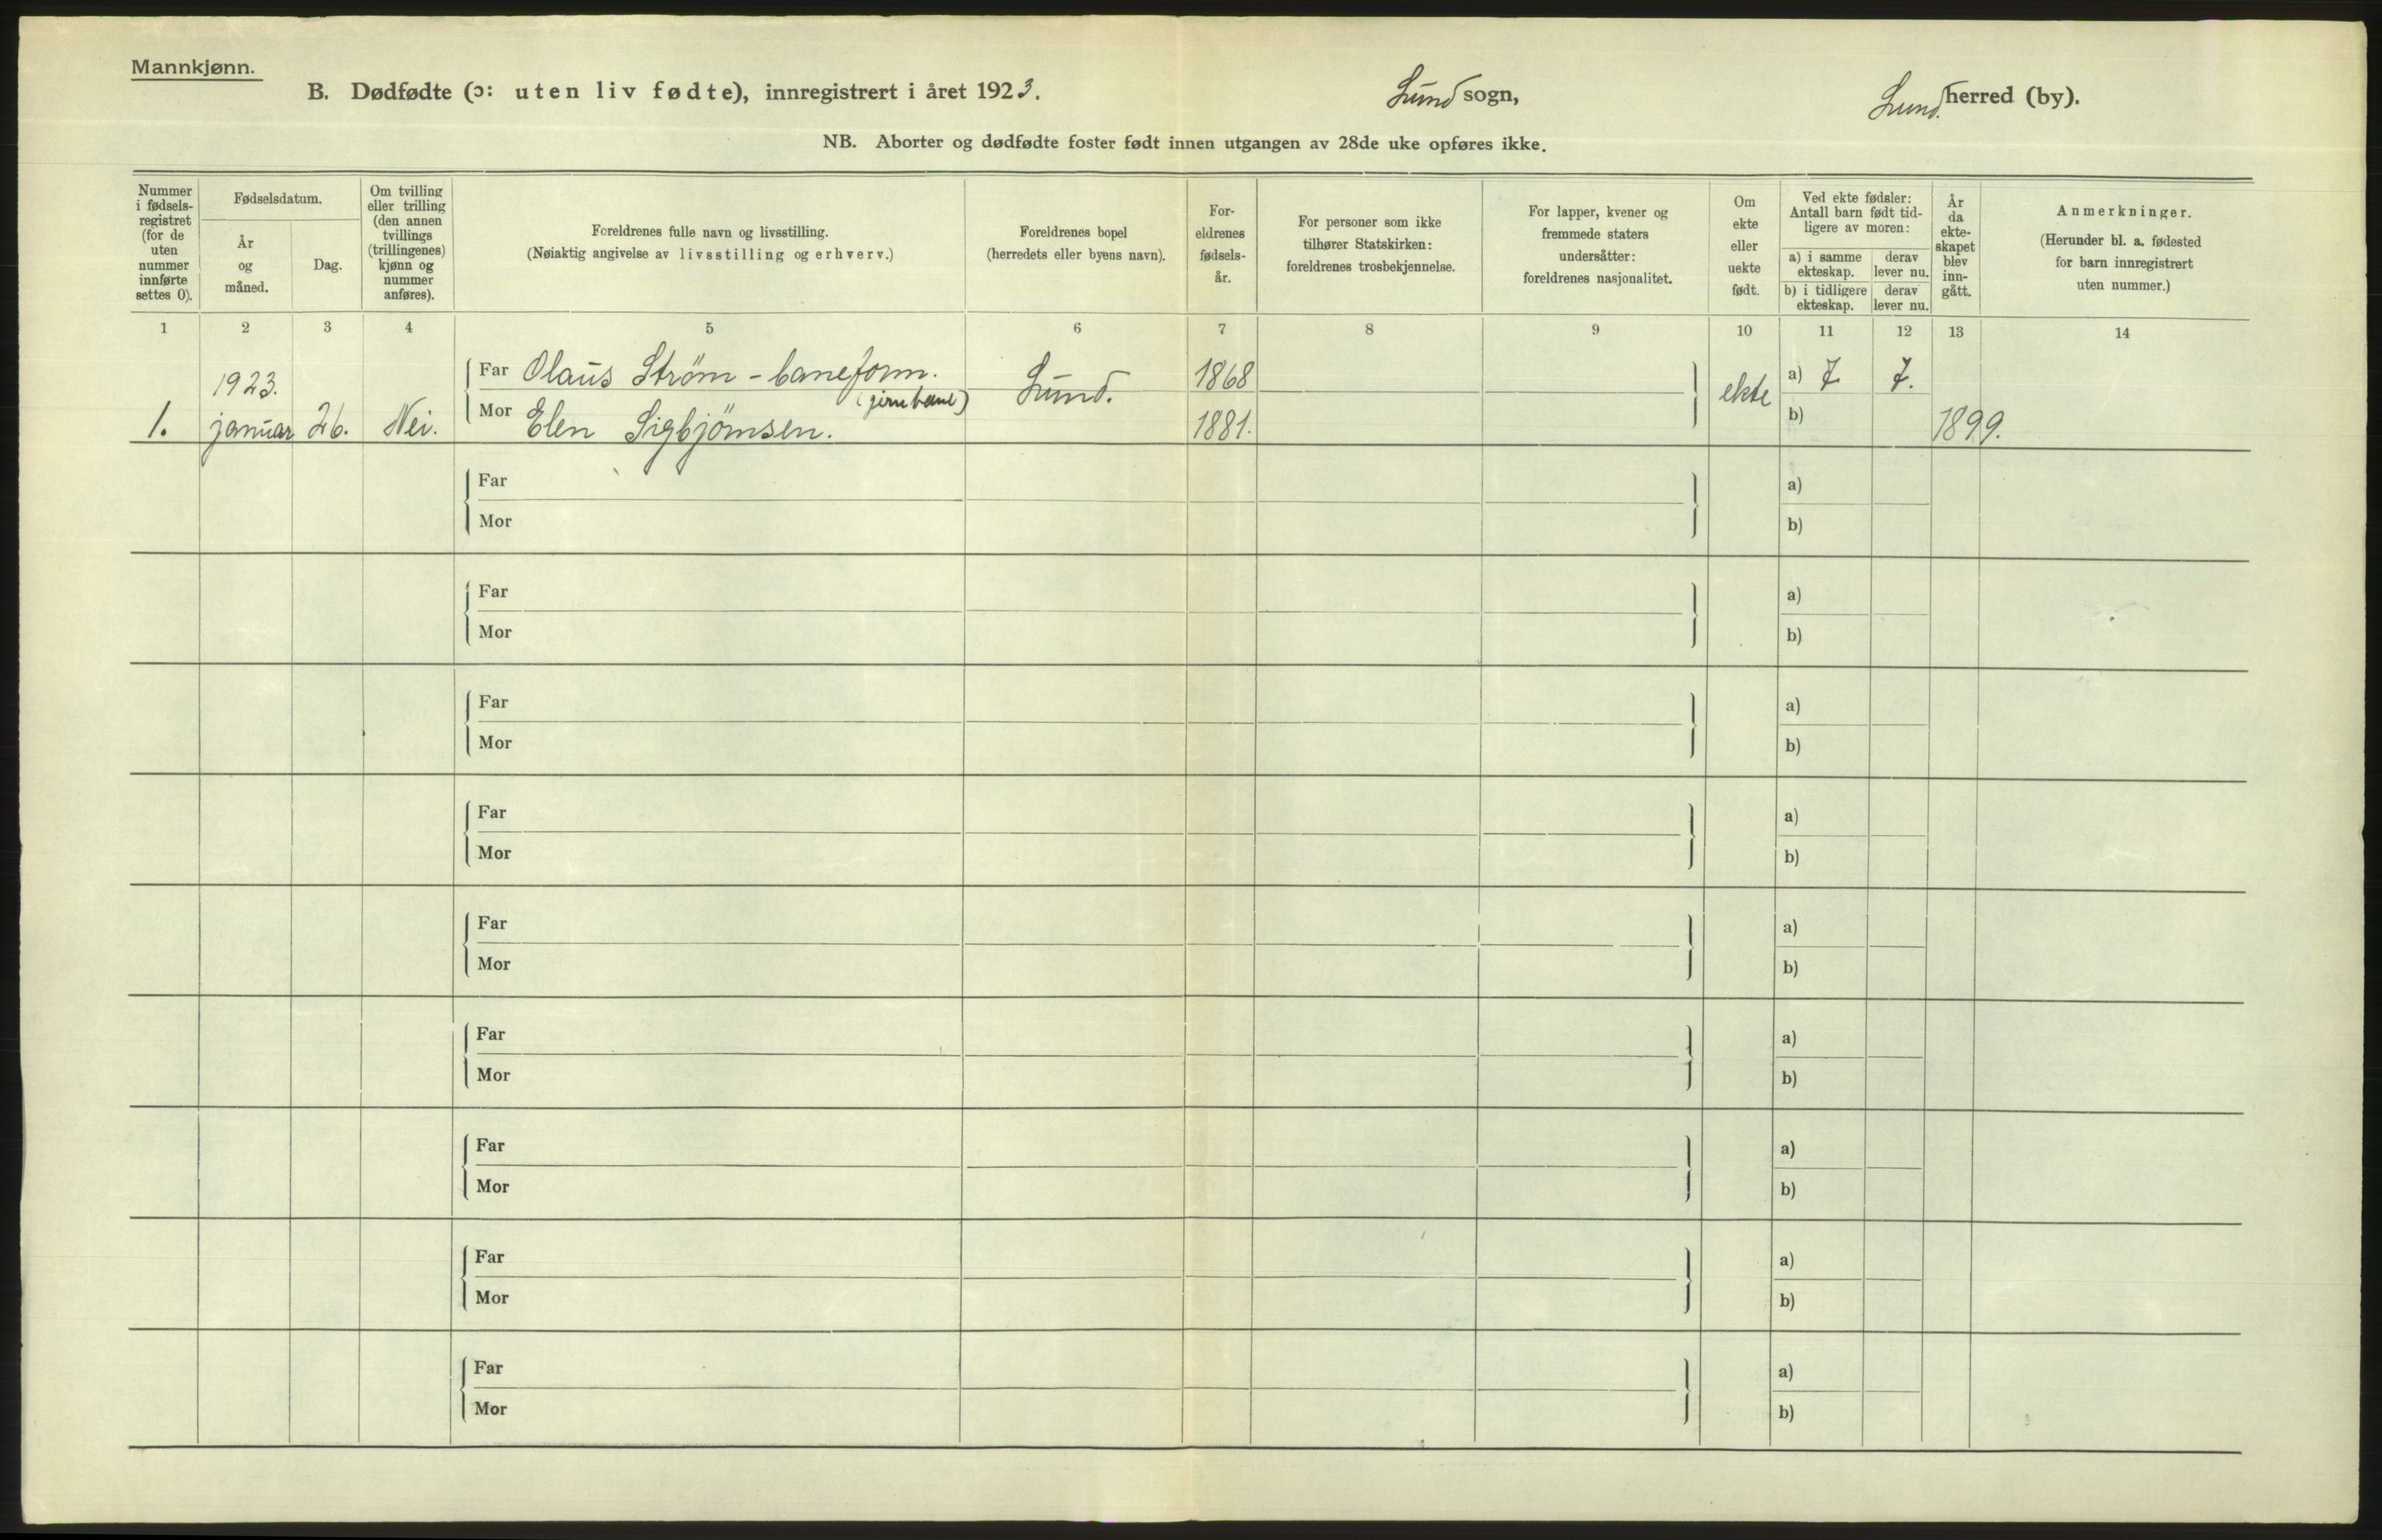 Mannkjønn.
B. Dødfødte (ɔ: uten liv fødte), innregistrert i året 1923. Lund sogn, Lund. herred (by).
NB. Aborter og dødfødte foster født innen utgangen av 28de uke opføres ikke.
Nummer
i fødsels-
registret
(for de
uten
nummer
innførte
settes 0).
Fødselsdatum.
År
og
måned.
Dag.
Om tvilling
eller trilling
(den annen
tvillings
(trillingenes)
kjønn og
nummer
anføres).
Foreldrenes fulle navn og livsstilling.
(Nøiaktig angivelse av livsstilling og erhverv.)
Foreldrenes bopel
(herredets eller byens navn).
For-
eldrenes
fødsels-
år.
For personer som ikke
tilhører Statskirken:
foreldrenes trosbekjennelse.
For lapper, kvener og
fremmede staters
undersåtter:
foreldrenes nasjonalitet.
Om
ekte
eller
uekte
født.
Ved ekte fødsler:
Antall barn født tid-
ligere av moren:
a) i samme
ekteskap.
derav
lever nu.
b) i tidligere
ekteskap.
derav
lever nu.
År
da
ekte-
skapet
blev
inn-
gått.
Anmerkninger.
(Herunder bl. a. fødested
for barn innregistrert
uten nummer.)
1 2 3 4 5 6 7 8 9 10 11 12 13 14
1923.
Far Olaus Strøm - baneform. 1868 a) 7 7.
(jernbane)
Lund. ekte
1. januar 26. Nei. Mor Elen Sigbjörnsen. 1881. b) 1899.
Far a)
Mor b)
Far a)
Mor b)
Far a)
Mor b)
Far a)
Mor b)
Far a)
Mor b)
Far a)
Mor b)
Far a)
Mor b)
Far a)
Mor b)
Far a)
Mor b)